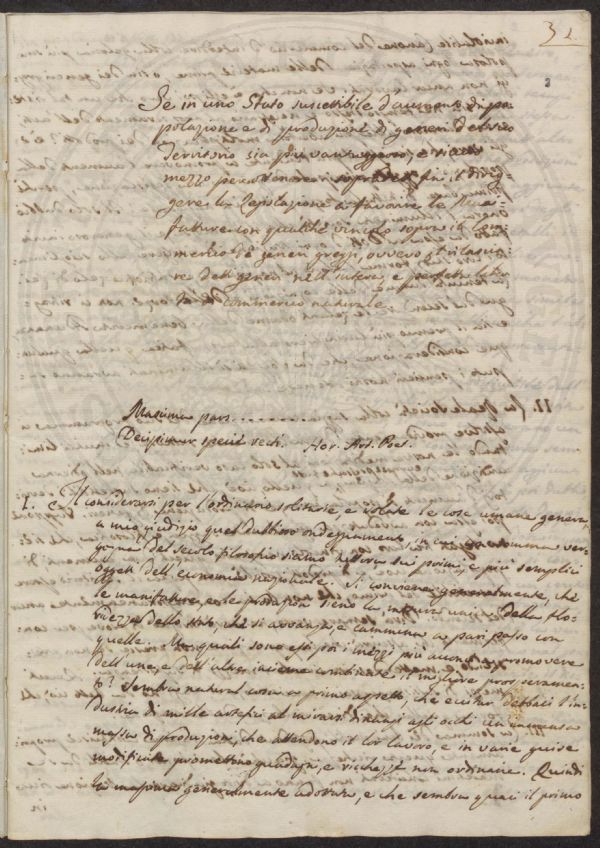 32
Se in uno Stato suscettibile d'aumento di po=
polazione e di produzione di generi del suo
Territorio sia più vantaggioso, e sicuro
mezzo per ottenere i sopra fini il diri=
gere la Legislazione a favorire le Manu=
fatture con qualche vincolo sopra il Com=
mercio de generi greggi, ovvero il rilascia=
re detti generi nell'intera, e perfetta liber
tà di commercio naturale.
Maxima pars.........
Decipimur specie recti. Hor. Art. Poet.
I. Il considerarsi per l'ordinario solitarie, e isolate le cose umane genera,
a mio giudizio quel dubbioso ondeggiamento, in cui con somma ver=
gogna del secolo filosofico siamo tuttora sui primi, e più semplici
oggetti dell'economia nazionale. Si conviene generalmente, che
le manifatture, e le produzioni sieno la misura della flo=
ridezza dello stato, che si avanza, e cammina a pari passo con
quelle. Ma quali sono essi poi i mezzi più acconci a promovere
dell'une, e dell'altre insieme combinate il migliore prosperamen=
to? Sembra natural cosa a primo aspetto, che ecciter debbasi l'in=
dustria di mille artefici al mirarsi dinanzi agli occhi un'immensa
massa di produzioni, che attendono il lor lavoro, e in varie guise
modificate promettono guadagni, e ricchezze non ordinarie. Quindi
la massima generalmente adottata, e che sembra quasi il primo